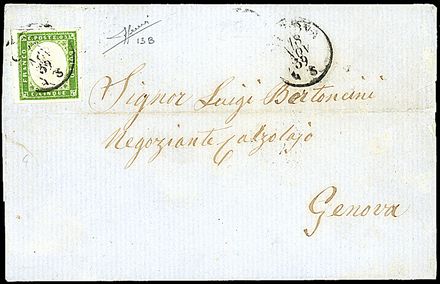 FRANCO
C. POSTE
CINQUE
13 B
18
NOV
59
Signor Luigi Bertoncini
Negoziante Calzolajo
Genova